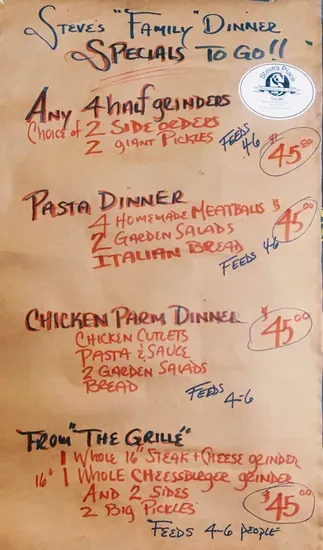 Steve's "Family" Dinner
Specials To Go!!
Steve's Place
Any 4 half grinders
Choice of 2 Side orders
2 giant Pickles
Feeds 4-6
$45.00
Pasta Dinner
4 Homemade Meatballs
2 Garden Salads
Italian Bread
Feeds 4-6
$45.00
Chicken Parm Dinner
Chicken Cutlets
Pasta & Sauce
2 Garden Salads
Bread
Feeds 4-6
$45.00
From "The Grille"
1 Whole 16" Steak + Cheese grinder
16" 1 Whole Cheessburger grinder
And 2 Sides
2 Big Pickles
$45.00
Feeds 4-6 people